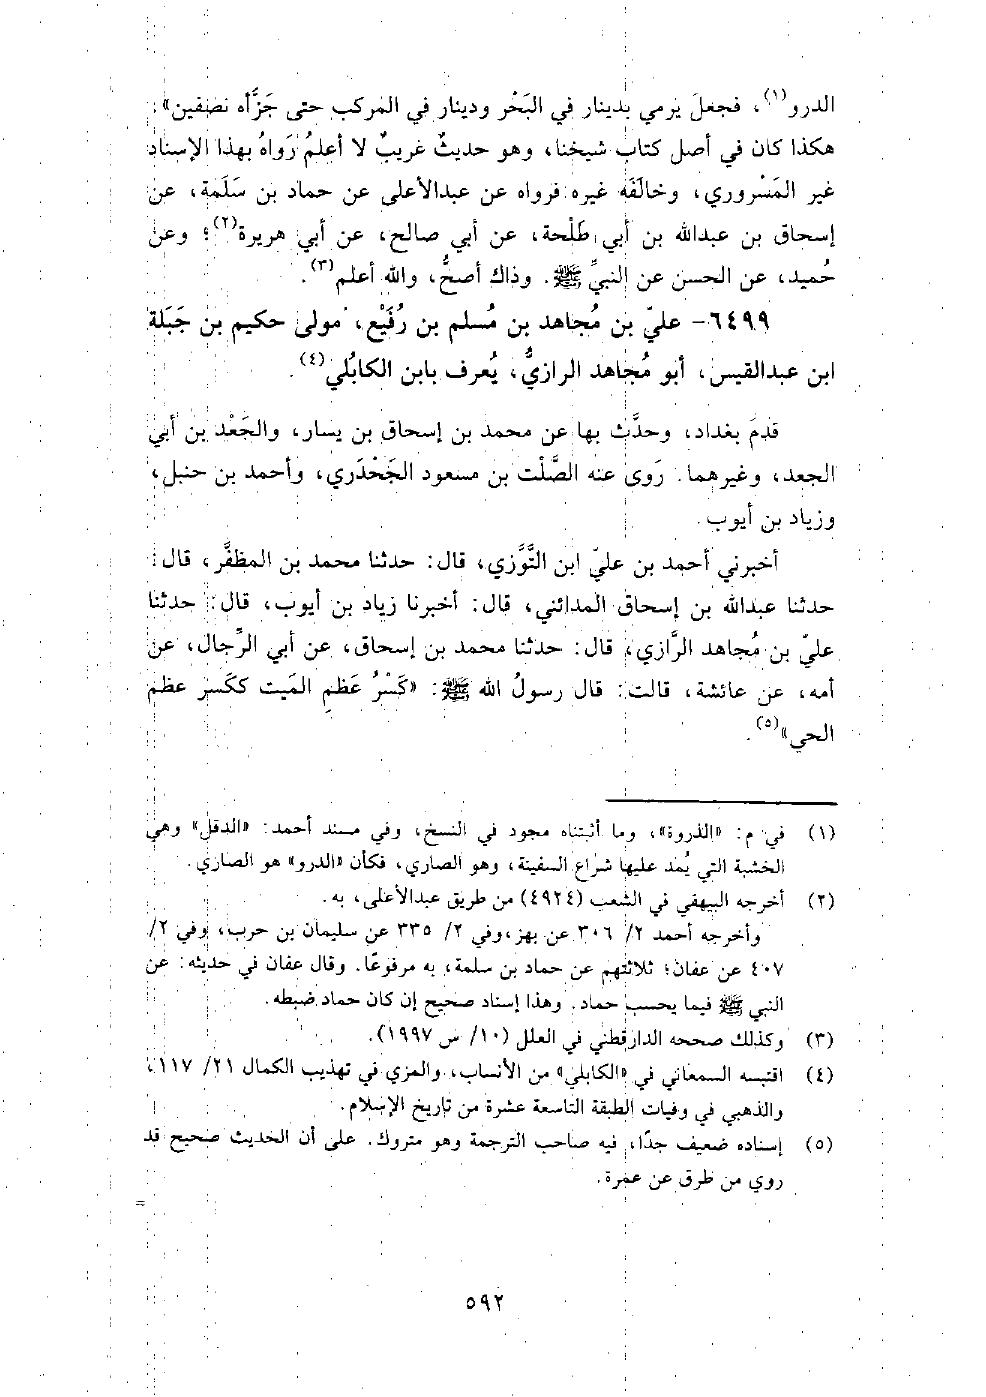 الدرو(١)، فجعلَ يرمي بدينار في البَحْر ودينار في المركب حتى جَزَّأه نصفين»؛
هكذا كان في أصل كتاب شيخنا، وهو حديثٌ غريبٌ لا أعلمُ رَواهُ بهذا الإسناد
غير المَسْروري، وخالَفَه غيره فرواه عن عبدالأعلى عن حماد بن سَلَمة، عن
إسحاق بن عبدالله بن أبي طَلْحة، عن أبي صالح، عن أبي هريرة(٢)؛ وعن
حُميد، عن الحسن عن النبيِّ ﷺ. وذاك أصحُّ، والله أعلم(٣).
٦٤٩٩- عليّ بن مُجاهد بن مُسلم بن رُفَيْع، مولى حكيم بن جَبَلة
ابن عبدالقيس، أبو مُجاهد الرازيُّ، يُعرف بابن الكابُلي(٤).
قدِمَ بغداد، وحدَّث بها عن محمد بن إسحاق بن يسار، والجَعْد بن أبي
الجعد، وغيرهما. رَوى عنه الصَّلْت بن مسعود الجَحْدَري، وأحمد بن حنبل،
وزياد بن أيوب.
أخبرني أحمد بن عليّ ابن التَّوَّزي، قال: حدثنا محمد بن المظفَّر، قال:
حدثنا عبدالله بن إسحاق المدائني، قال: أخبرنا زياد بن أيوب، قال: حدثنا
عليّ بن مُجاهد الرَّازي، قال: حدثنا محمد بن إسحاق، عن أبي الرِّجال، عن
أمه، عن عائشة، قالت: قال رسولُ الله ﷺ: «كَسْرُ عَظمِ المَيت ككَسرِ عظم
الحي»(٥).
(١) في م: «الذروة»، وما أثبتناه مجود في النسخ، وفي مسند أحمد: «الدقل» وهي
الخشبة التي يُمد عليها شراع السفينة، وهو الصاري، فكأن «الدرو» هو الصاري.
(٢) أخرجه البيهقي في الشعب (٤٩٢٤) من طريق عبدالأعلى، به.
وأخرجه أحمد ٢/ ٣٠٦ عن بهز، وفي ٢/ ٣٣٥ عن سليمان بن حرب، وفي ٢/
٤٠٧ عن عفان؛ ثلاثتهم عن حماد بن سلمة، به مرفوعًا. وقال عفان في حديثه: عن
النبي ﷺ فيما يحسب حماد. وهذا إسناد صحيح إن كان حماد ضبطه.
(٣) وكذلك صححه الدارقطني في العلل (١٠/ س ١٩٩٧).
(٤) اقتبسه السمعاني في «الكابلي» من الأنساب، والمزي في تهذيب الكمال ٢١/ ١١٧،
والذهبي في وفيات الطبقة التاسعة عشرة من تاريخ الإسلام.
(٥) إسناده ضعيف جدًا، فيه صاحب الترجمة وهو متروك. على أن الحديث صحيح قد
روي من طرق عن عمرة.
=
٥٩٢